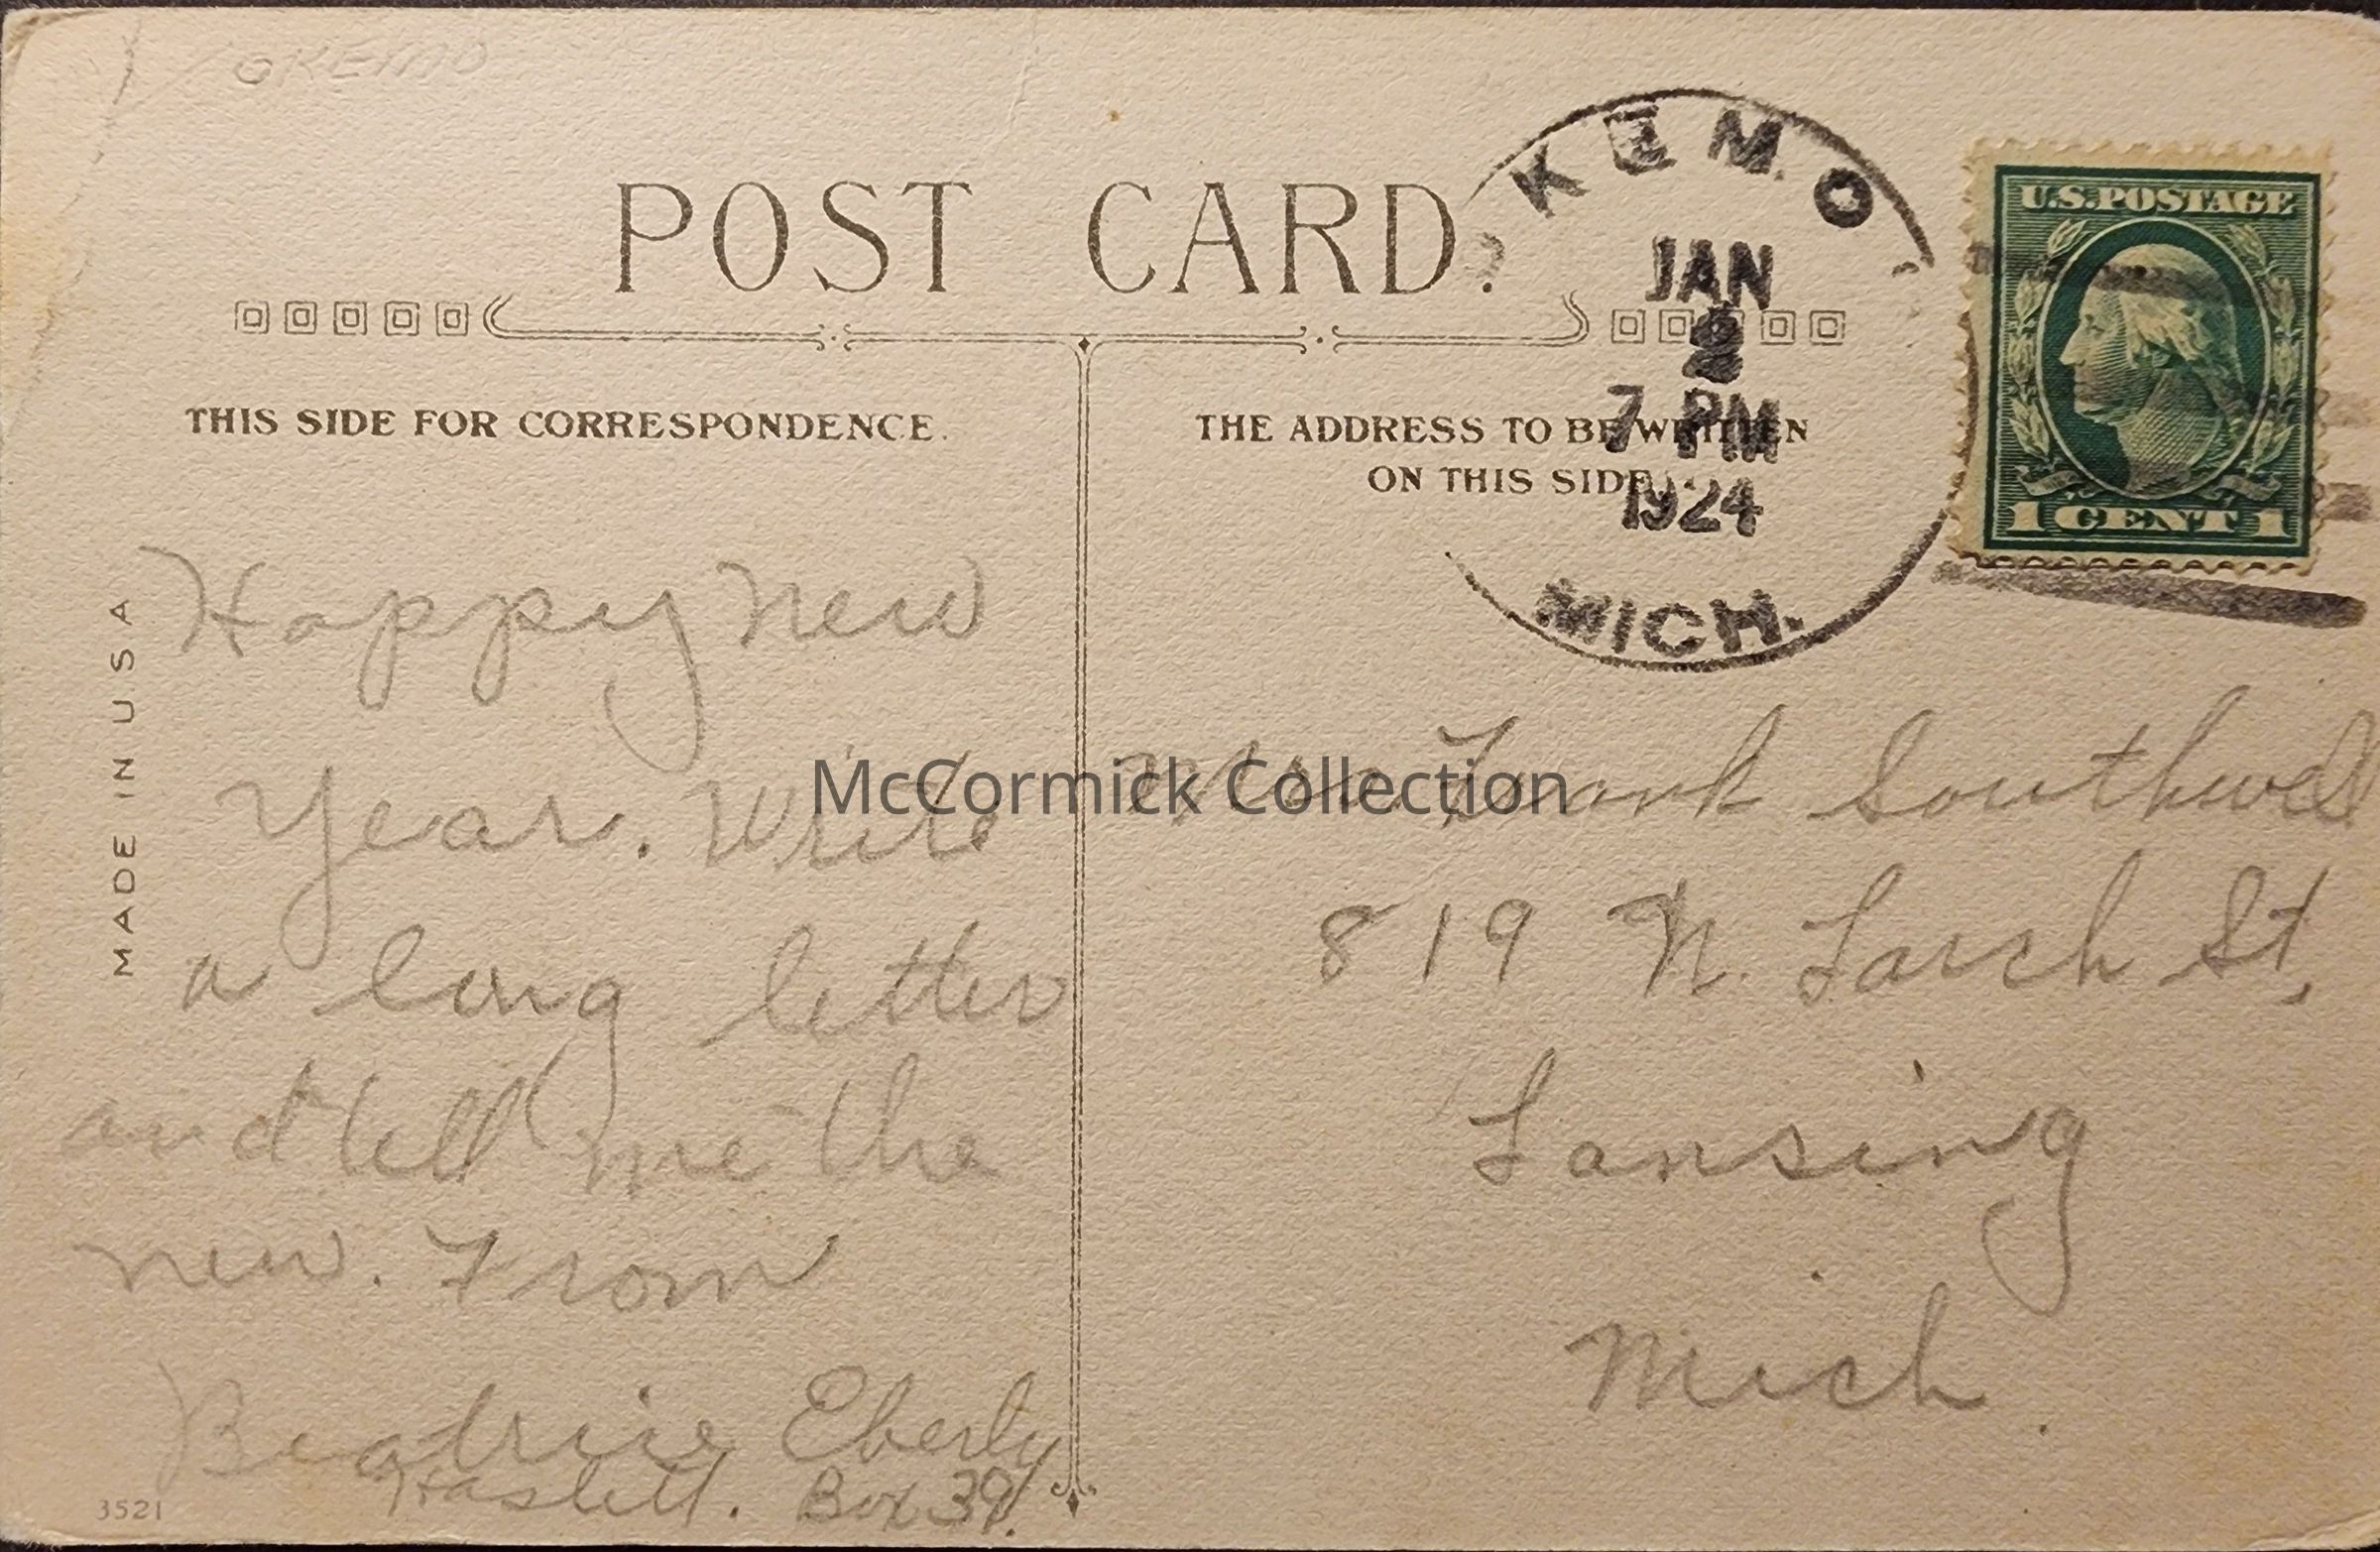 OKEMO
POST CARD.
KEMO
JAN
2
7 PM
1924
MICH.
U.S. POSTAGE
1 CENT 1
THIS SIDE FOR CORRESPONDENCE.
THE ADDRESS TO BE WRITTEN
ON THIS SIDE
MADE IN U.S.A
Happy New
Year. Write
a long letter
and tell me the
new. From
Beatrice Eberly
Haslett. Box 39.
3521
Mrs Frank Southwell
819 N. Larch St,
Lansing
Mich.
McCormick Collection